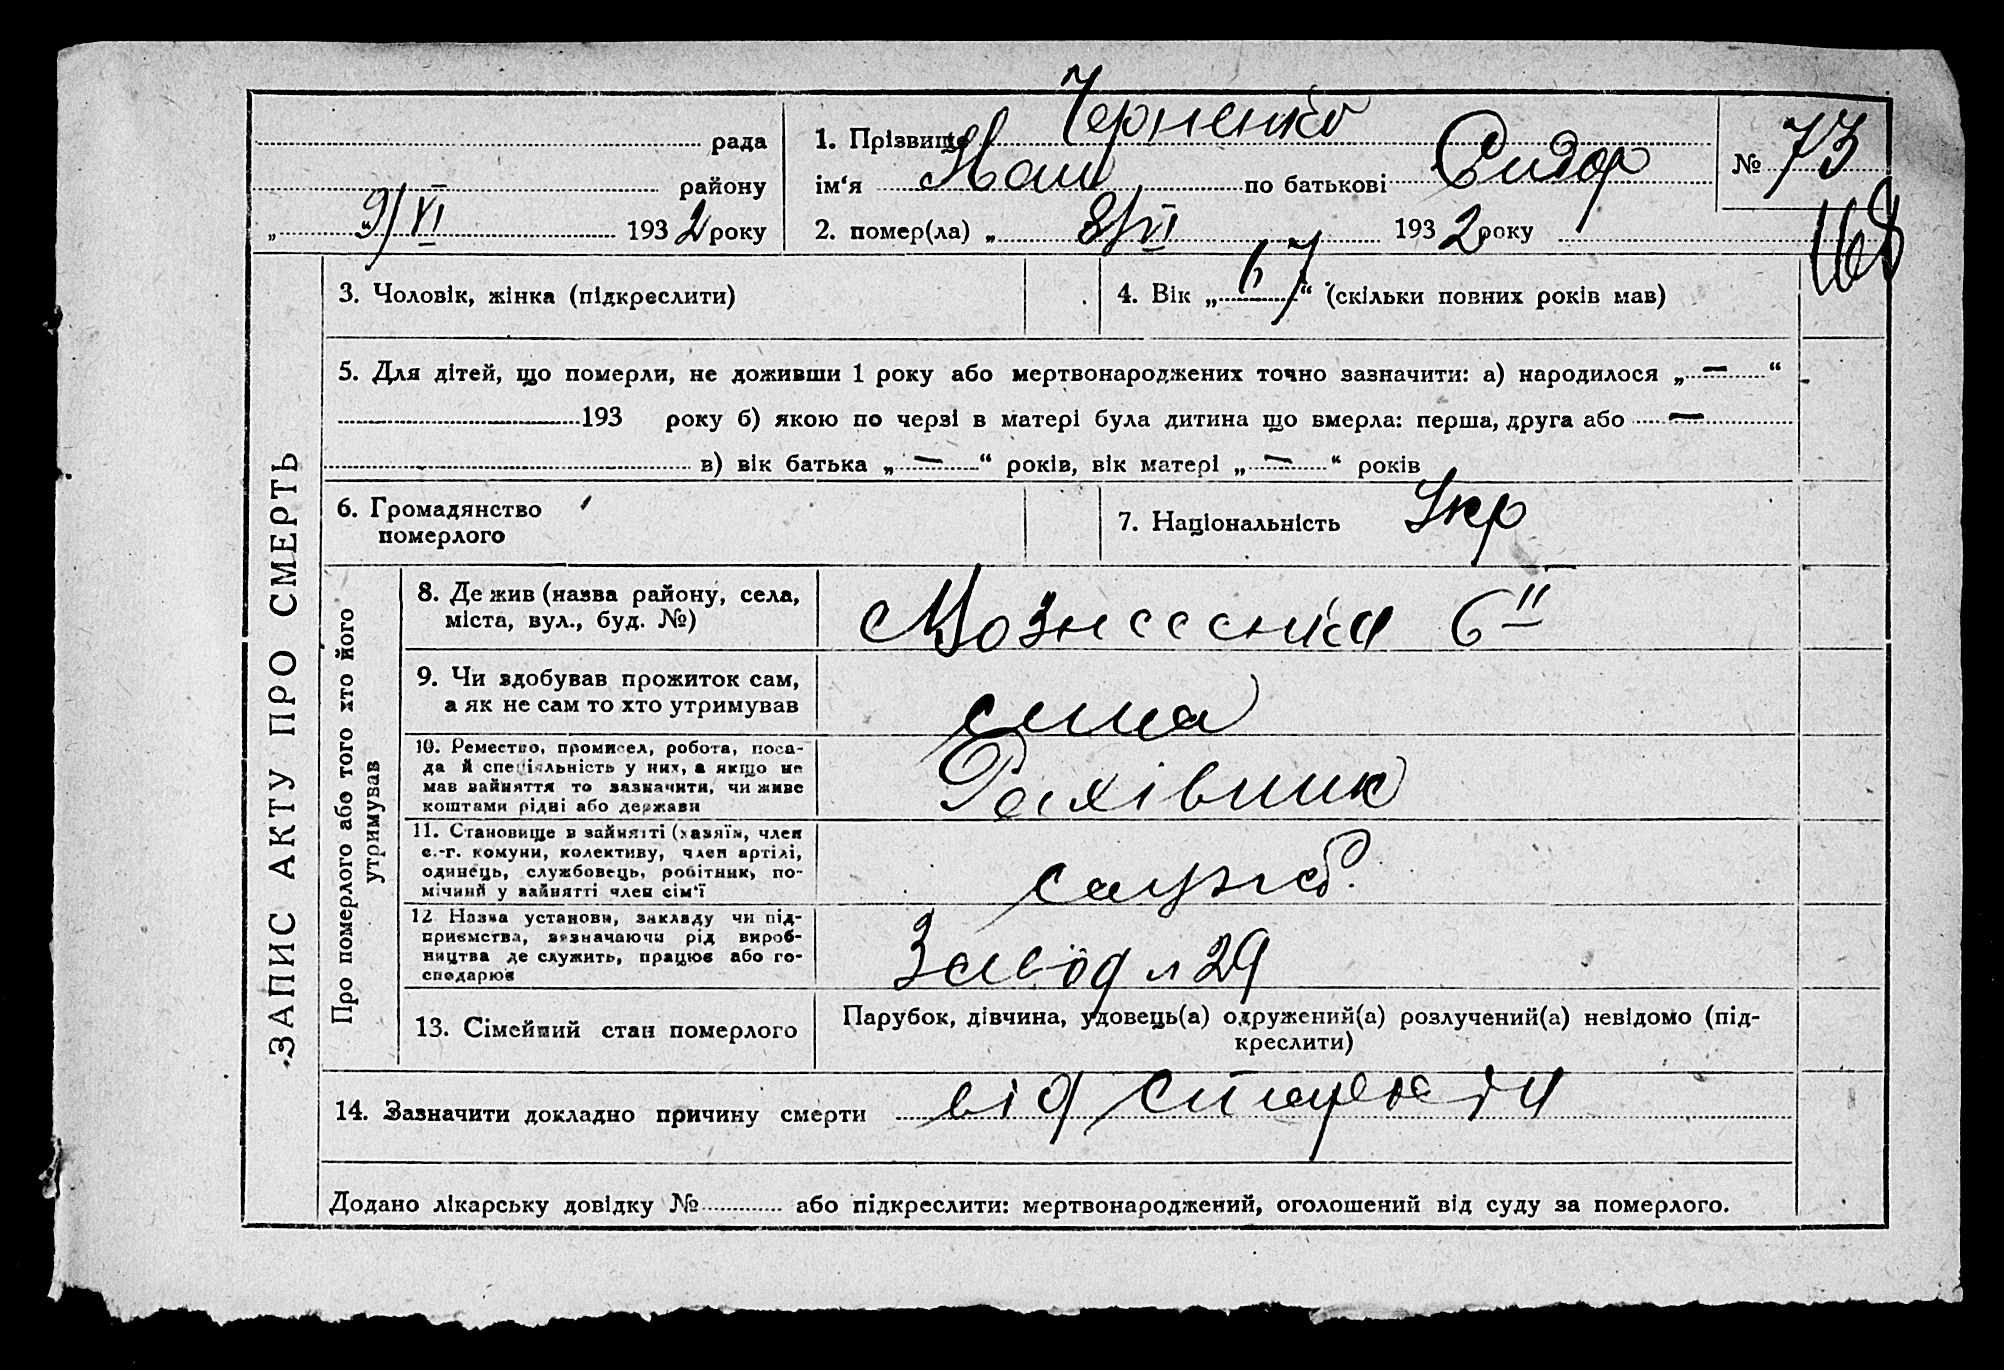 рада
району
„ 9/VI 1932 року
1. Прізвище Черненко
ім‘я Нат по батькові Сидор
2. помер(ла) „ 8/VI 1932 року
№ 73
168
ЗАПИС АКТУ ПРО СМЕРТЬ
3. Чоловік, жінка (підкреслити)
4. Вік „ 67 “ (скільки повних років мав)
5. Для дітей, що померли, не доживши 1 року або мертвонароджених точно зазначити: а) народилося „ — “
193 року б) якою по черзі в матері була дитина що вмерла: перша, друга або —
в) вік батька „ — “ років, вік матері „ — “ років
6. Громадянство
померлого
7. Національність Укр
Про померлого або того хто його
утримував
8. Де жив (назва району, села,
міста, вул., буд. №)
Вознесенка 6
9. Чи здобував прожиток сам,
а як не сам то хто утримував
сина
10. Ремество, промисел, робота, поса-
да й спеціяльність у них, а якщо не
мав зайняття то зазначити, чи живе
коштами рідні або держави
Рахівник
11. Становище в зайнятті (хазяїн, член
с.-г. комуни, колективу, член артілі,
одинець, службовець, робітник, по-
мічний у зайнятті член сім‘ї
служб.
12 Назва установи, закладу чи під-
приємства, зазначаючи рід вироб-
ництва де служить, працює або го-
сподарює
Завод 29
13. Сімейний стан померлого
Парубок, дівчина, удовець(а) одружений(а) розлучений(а) невідомо (під-
креслити)
14. Зазначити докладно причину смерти від старости
Додано лікарську довідку № або підкреслити: мертвонароджений, оголошений від суду за померлого.